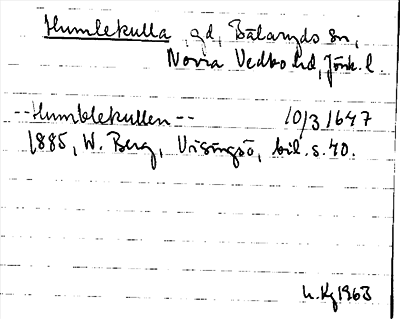 Humlekulla, gd, Bälaryds sn,
Norra Vedbo hd, Jönk. l.
--Humblekullen-- 10/3 1647
1885, W. Berg, Visingsö, bil. s. 40.
1963